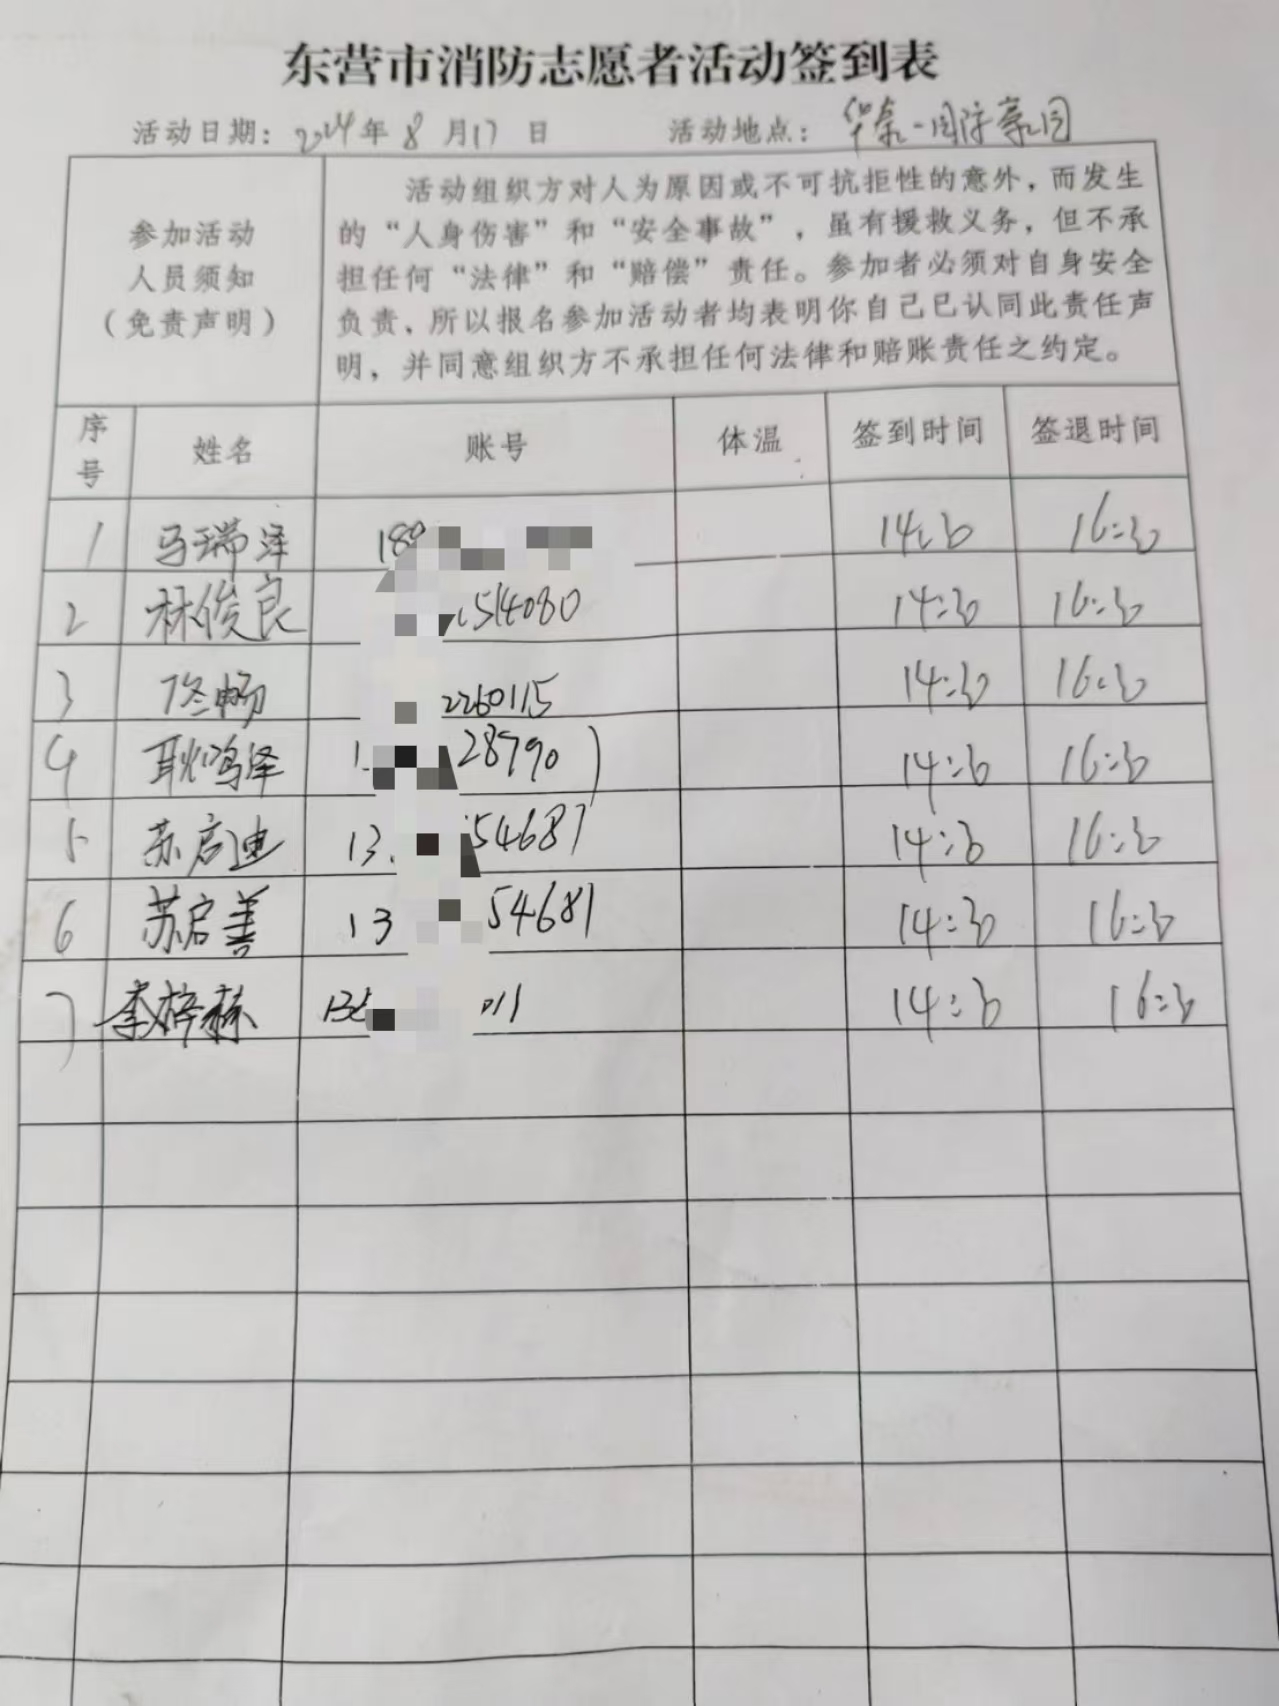 东营市消防志愿者活动签到表
活动日期：2024年8月17日 活动地点：华泰国际豪园
参加活动
人员须知
（免责声明）
活动组织方对人为原因或不可抗拒性的意外，而发生
的“人身伤害”和“安全事故”，虽有援救义务，但不承
担任何“法律”和“赔偿”责任。参加者必须对自身安全
负责，所以报名参加活动者均表明你自己已认同此责任声
明，并同意组织方不承担任何法律和赔账责任之约定。
序号 姓名 账号 体温 签到时间 签退时间
1 马瑞泽 14:30 16:30
2 林俊良 514080 14:30 16:30
3 佟畅 2260115 14:30 16:30
4 耿鸣泽 28790 14:30 16:30
5 苏启迪 13 54681 14:30 16:30
6 苏启善 13 54681 14:30 16:30
7 李梓赫 011 14:30 16:30